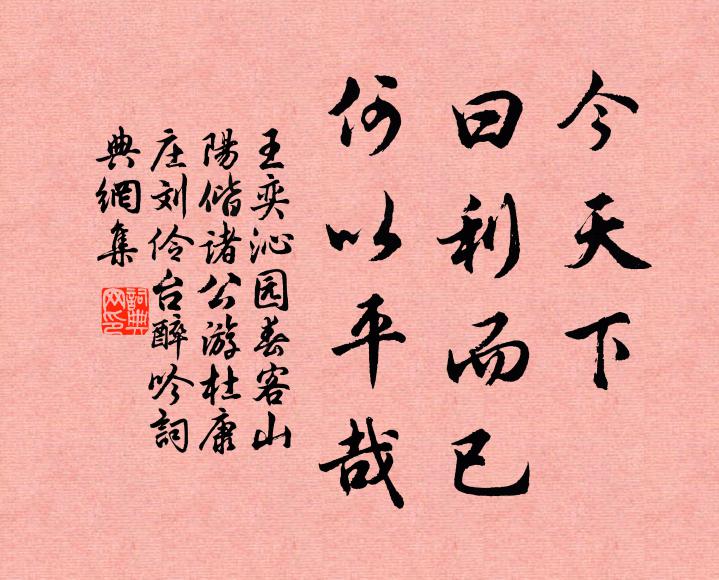 今天下
曰利而已
何以平哉
王奕沁园春客山
陽偕诸公游杜康
庄刘伶台醉吟詞
典網集
詞典
网印